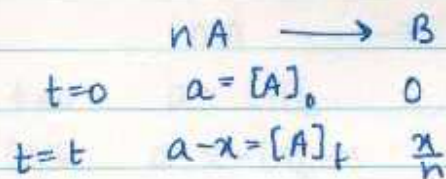 nA ⟶ B
t=0 a=[A]₀ 0
t=t a-x=[A]t x/n